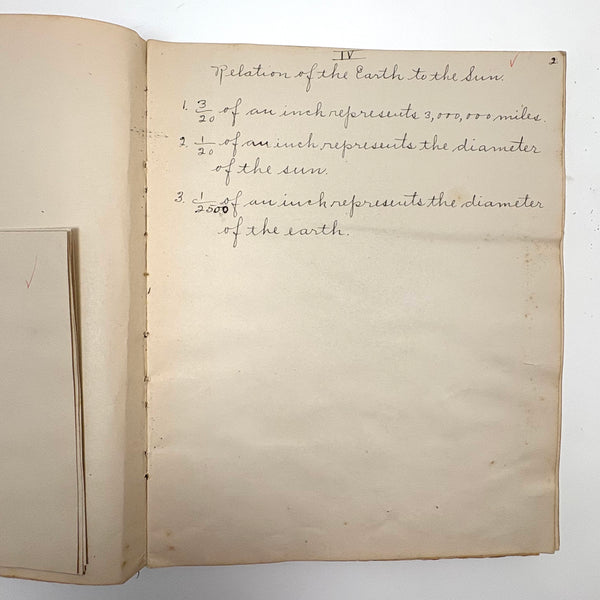 IV
2
Relation of the Earth to the Sun.
1. 3/20 of an inch represents 3,000,000 miles.
2. 1/20 of an inch represents the diameter
of the sun.
3. 1/2500 of an inch represents the diameter
of the earth.